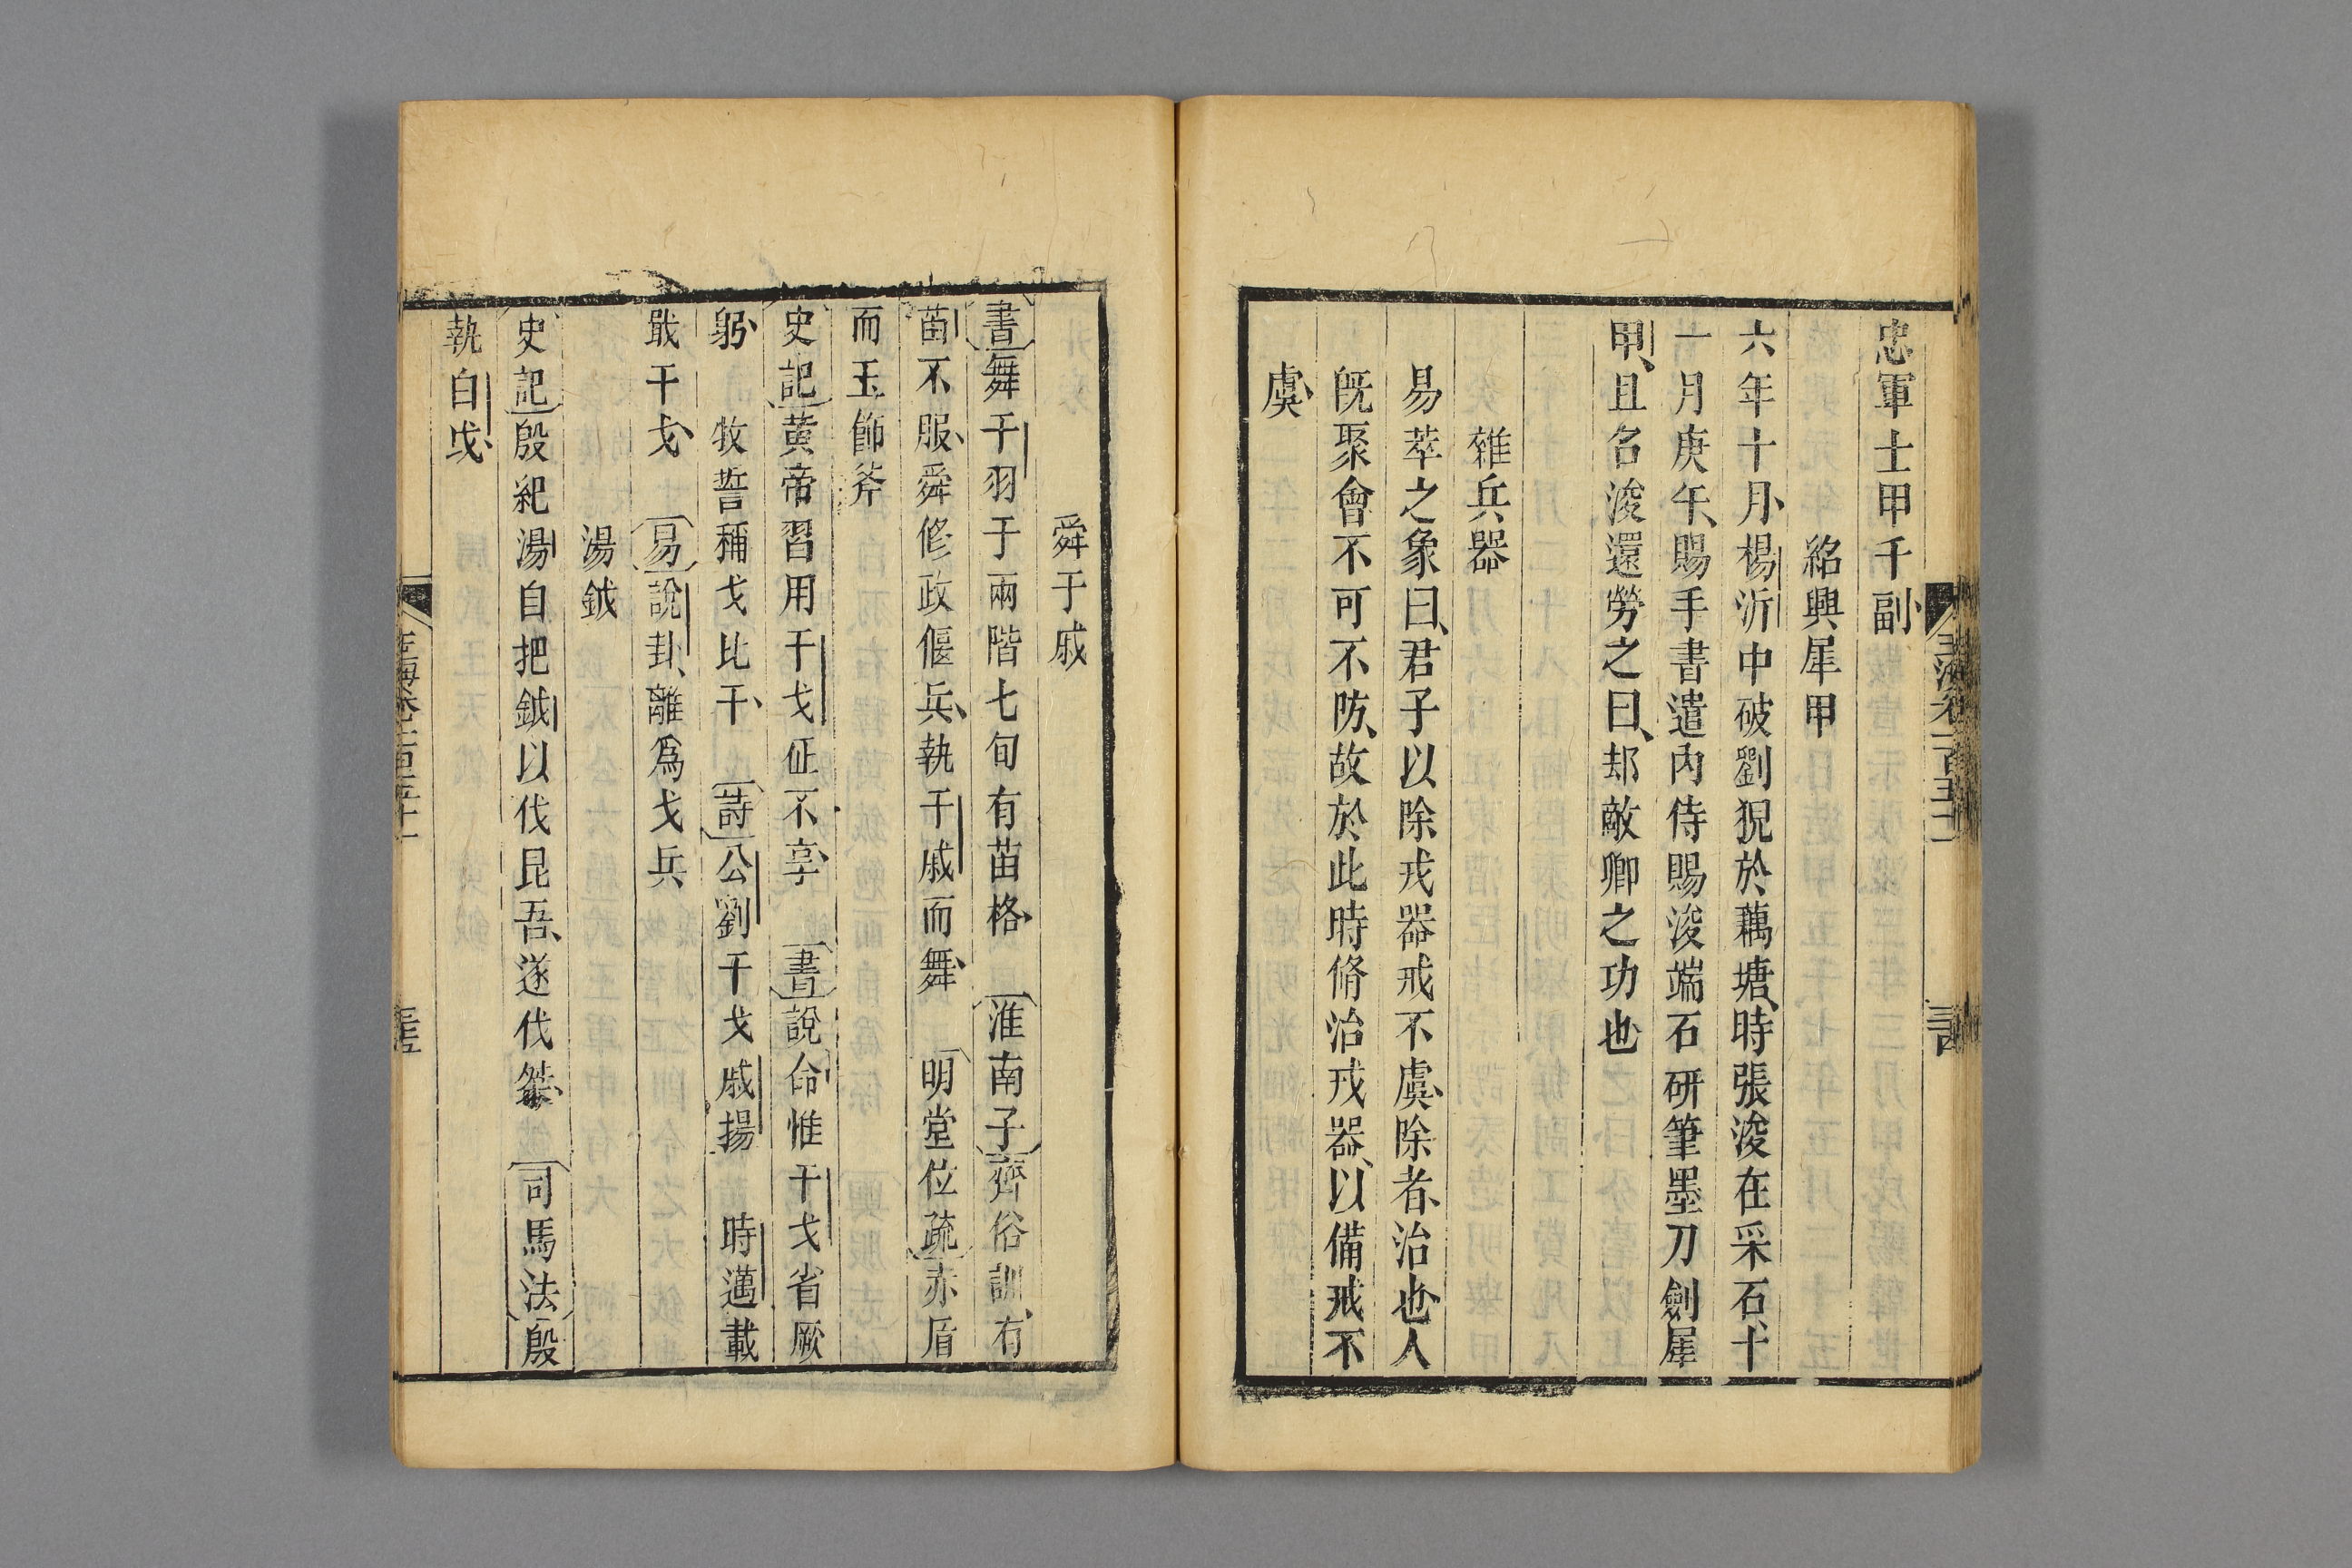 忠軍士甲千副
紹興犀甲
六年十月楊沂中破劉猊於藕塘時張浚在采石十
一月庚午賜手書遣內侍賜浚端石研筆墨刀劍犀
甲且名浚還勞之曰却敵卿之功也
雜兵器
易萃之象曰君子以除戎器戒不虞除者治也人
旣聚會不可不防故於此時脩治戎器以備戒不
虞
舜干戚
書舞干羽于兩階七旬有苗格　淮南子齊俗訓有
苗不服舜修政偃兵執干戚而舞　明堂位疏赤盾
而玉飾斧
史記黃帝習用干戈征不享　書說命惟干戈省厥
躬　牧誓稱戈比干　詩公劉干戈戚揚　時邁載
戢干戈　易說卦離爲戈兵
湯鉞
史記殷紀湯自把鉞以伐昆吾遂伐桀　司馬法殷
執白戉